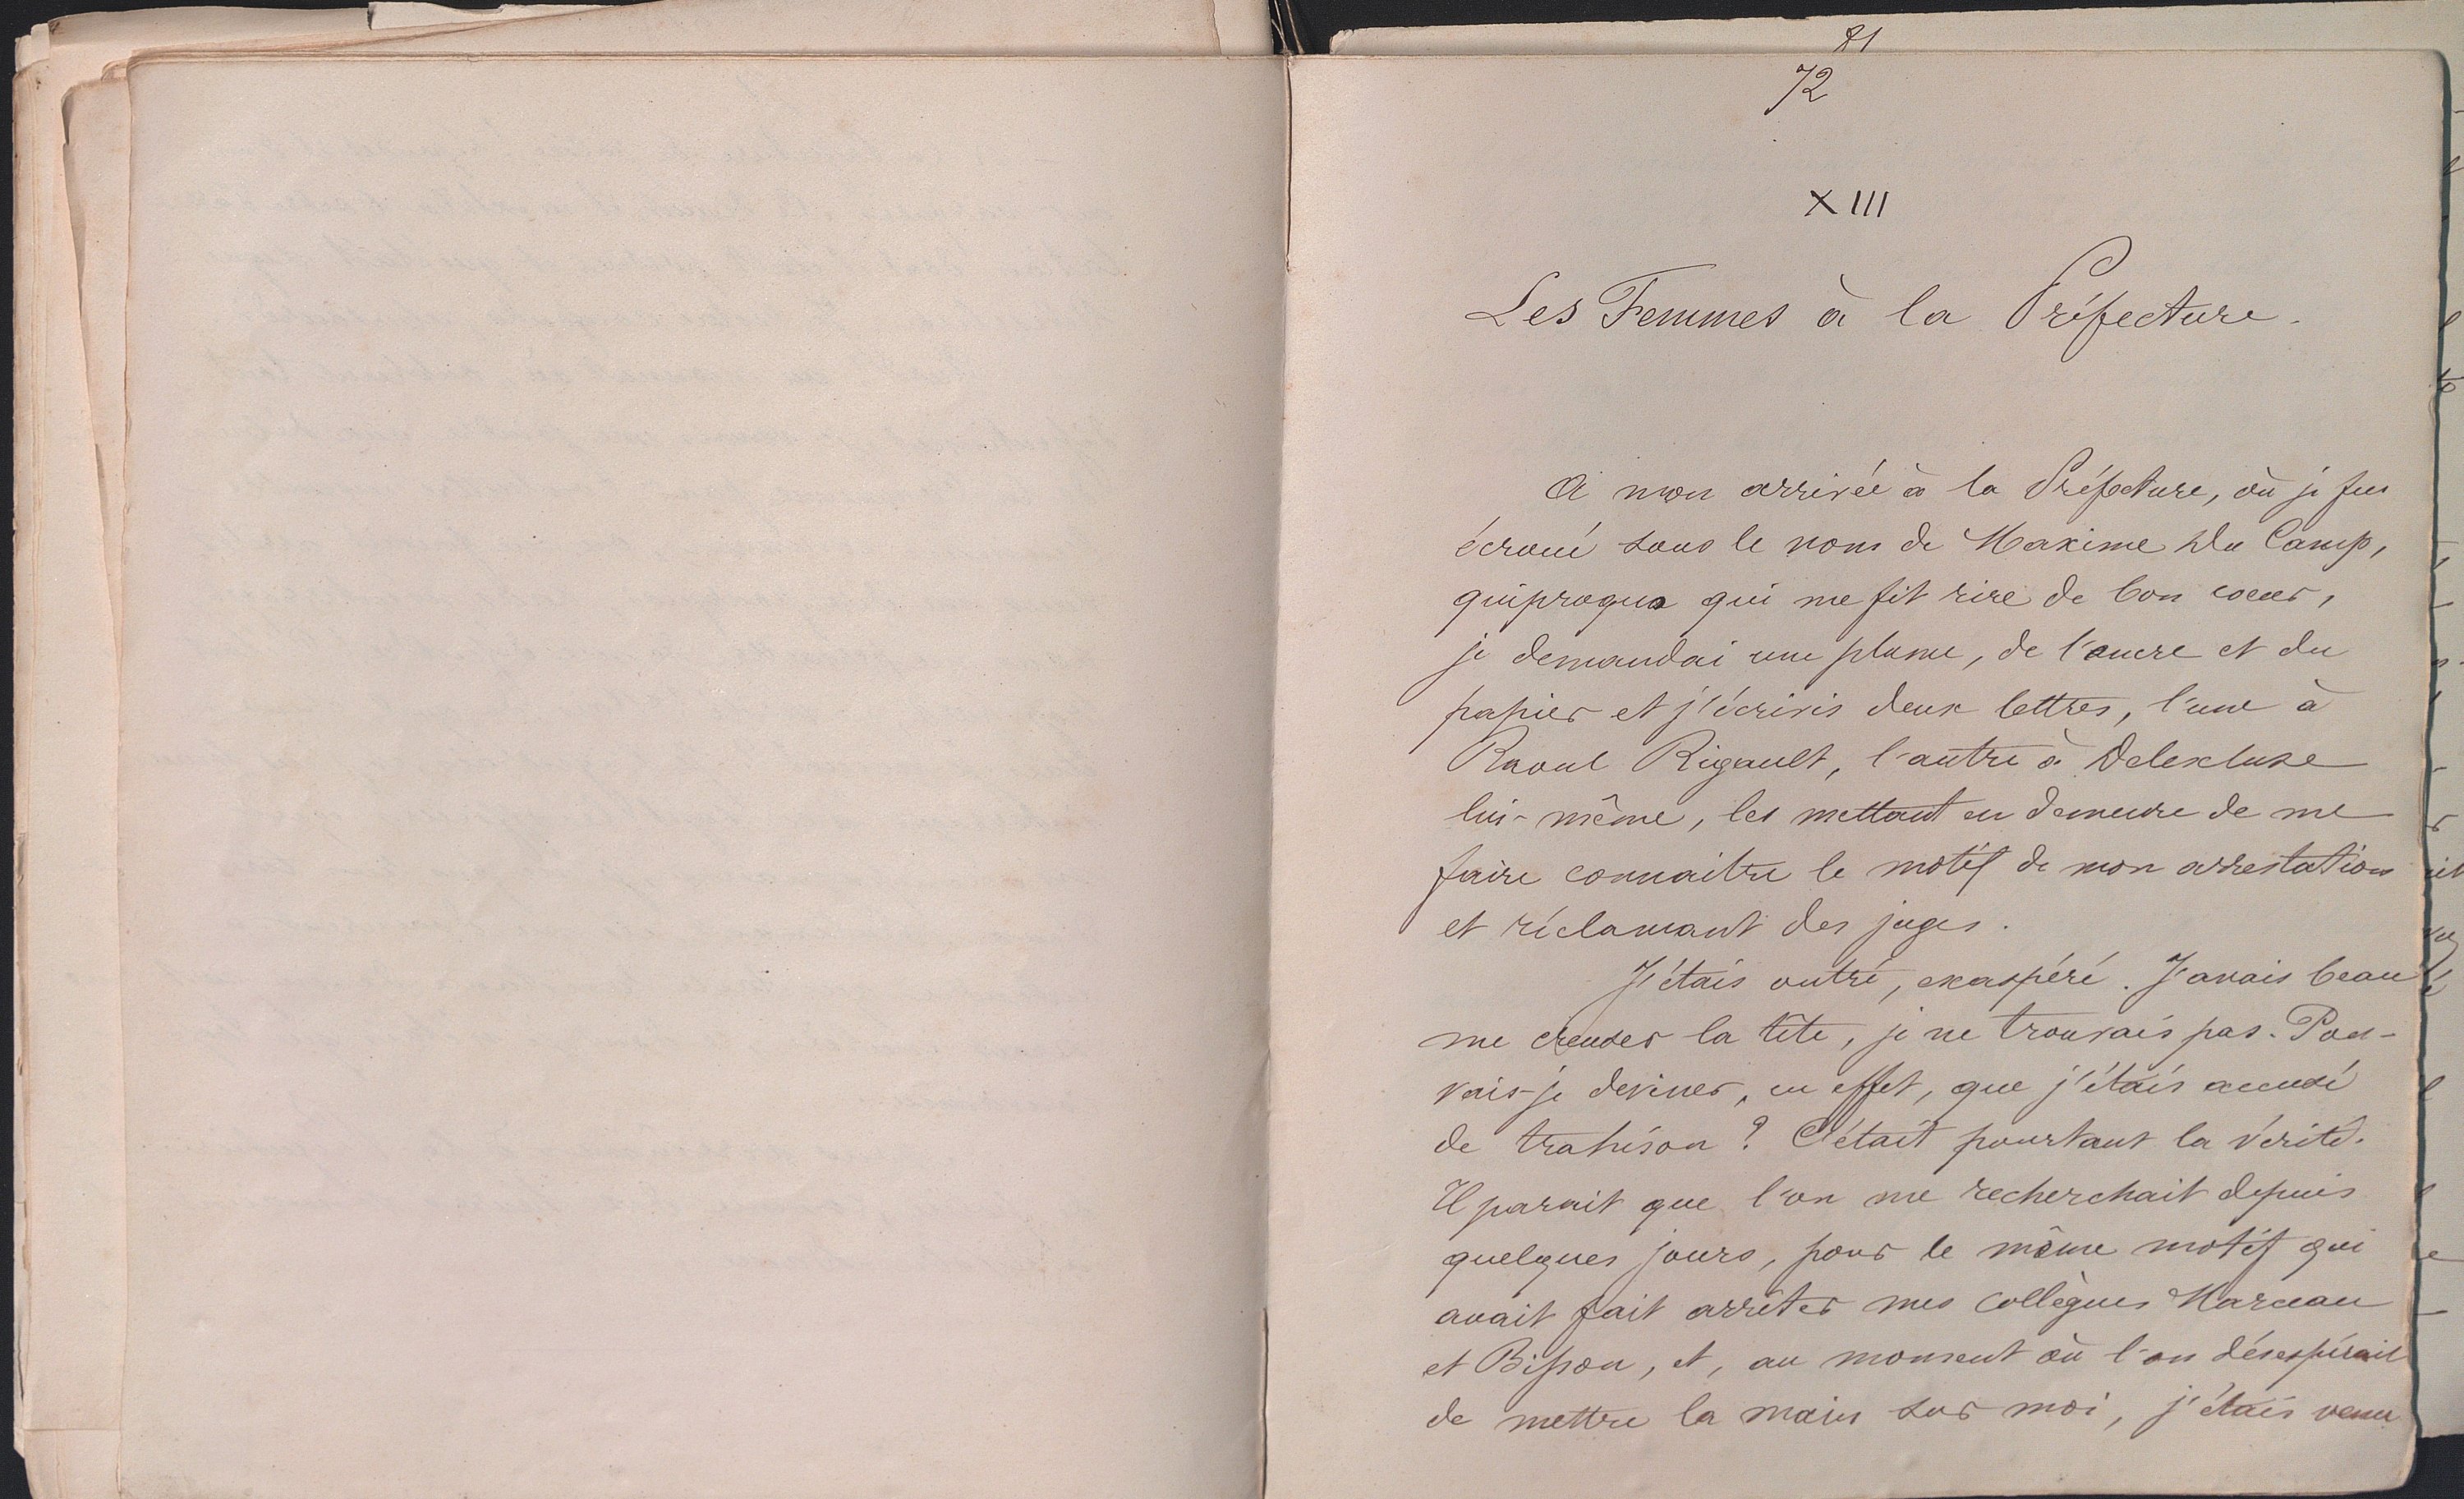 81
72
XIII
Les Femmes à la Préfecture.
A mon arrivée à la Préfecture, où je fus
écroué sous le nom de Maxime Du Camp,
quiproquo qui me fit rire de bon cœur,
je demandai une plume, de l'encre et du
papier et j'écrivis deux lettres, l'une à
Raoul Rigault, l'autre à Delescluze
lui-même, les mettant en demeure de me
faire connaitre le motif de mon arrestation
et réclamant des juges.
J'étais outré, exaspéré. J'avais beau
me creuser la tête, je ne trouvais pas. Pou-
vais-je deviner, en effet, que j'étais accusé
de trahison ? C'était pourtant la vérité.
Il parait que l'on me recherchait depuis
quelques jours, pour le même motif qui
avait fait arrêter mes collègues Marceau
et Bisson, et, au moment où l'on désespérait
de mettre la main sur moi, j'étais venu